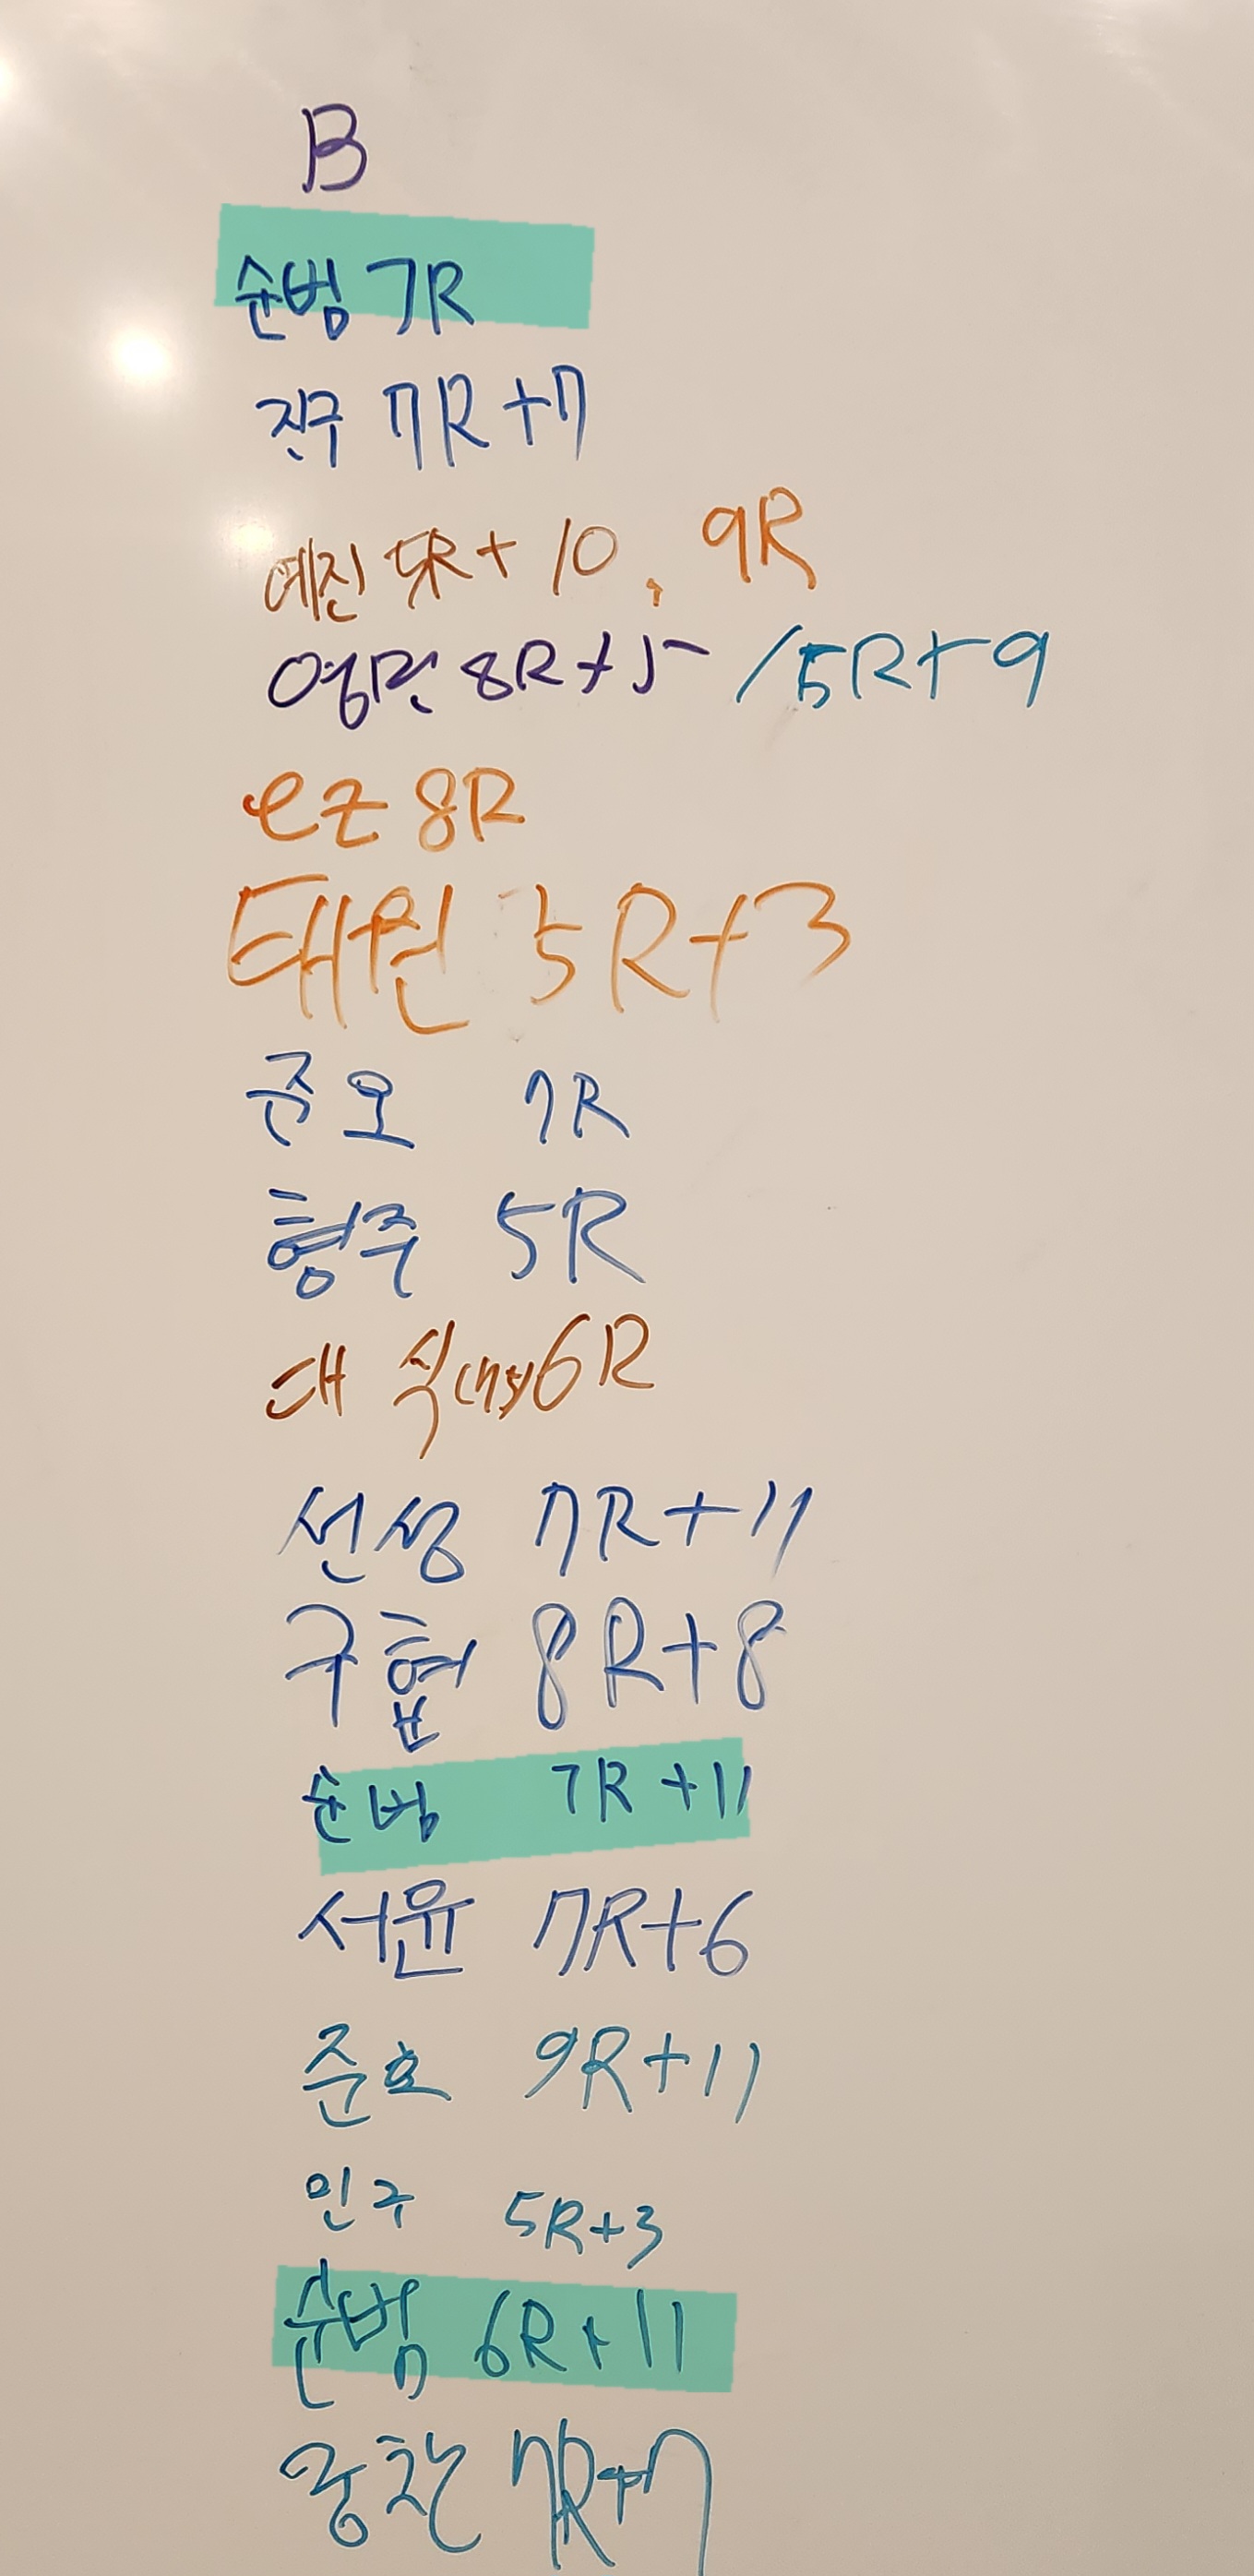 B
순범 7R
진구 7R+7
예진 5R+10, 9R
영민 8R+5 /5R+9
ez 8R
태원 5R+3
준오 7R
형주 5R
대식 6R
선생 7R+11
구협 8R+8
순범 7R+11
서윤 7R+6
준호 9R+11
민구 5R+3
순범 6R+11
중찬 7R+7